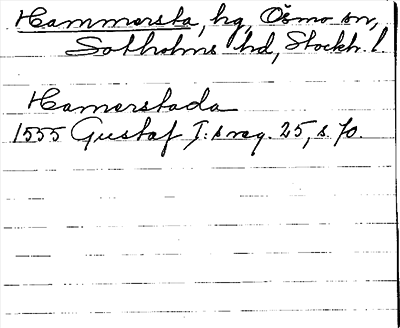 Hammersta, hg, Ösmo sn,
Sotholms hd, Stockh. l.
Hamerstada
1555 Gustaf I:s reg. 25, s. 70